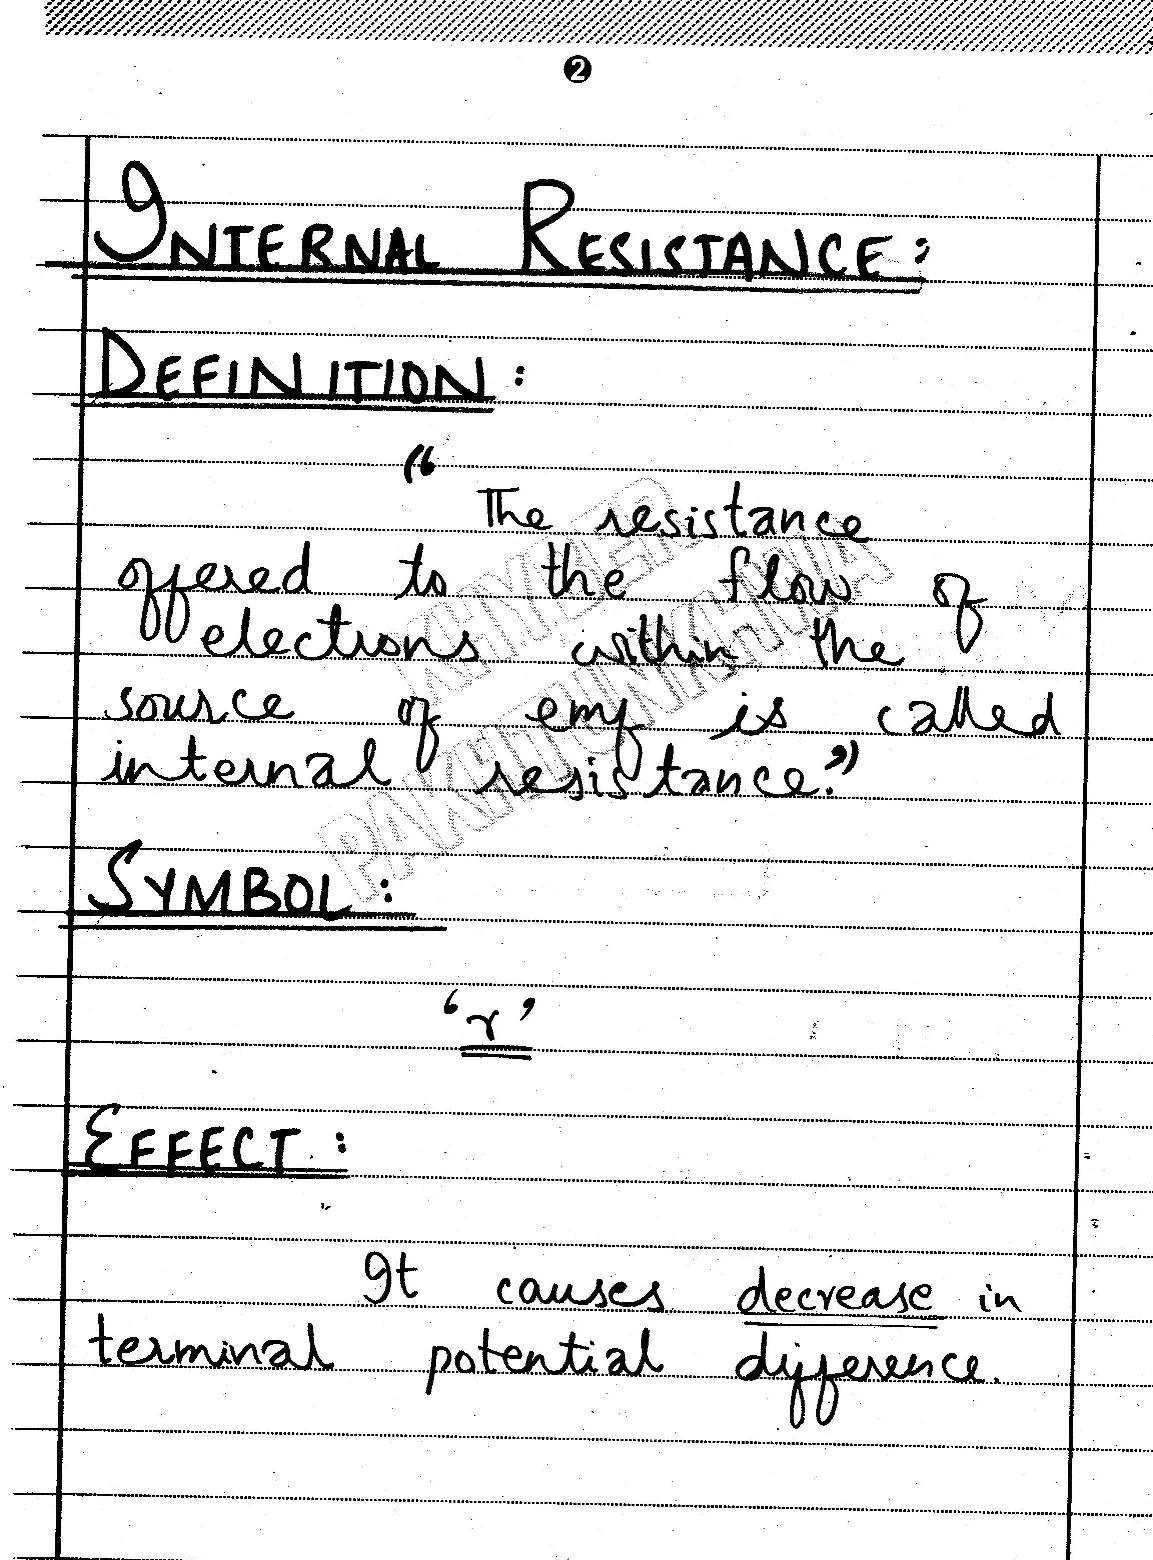 2
INTERNAL RESISTANCE:
DEFINITION:
“
The resistance
offered to the flow of
electrons within the
source of emf is called
internal resistance.”
SYMBOL:
‘r’
EFFECT:
It causes decrease in
terminal potential difference.
KHYBER
PAKHTUNKHWA